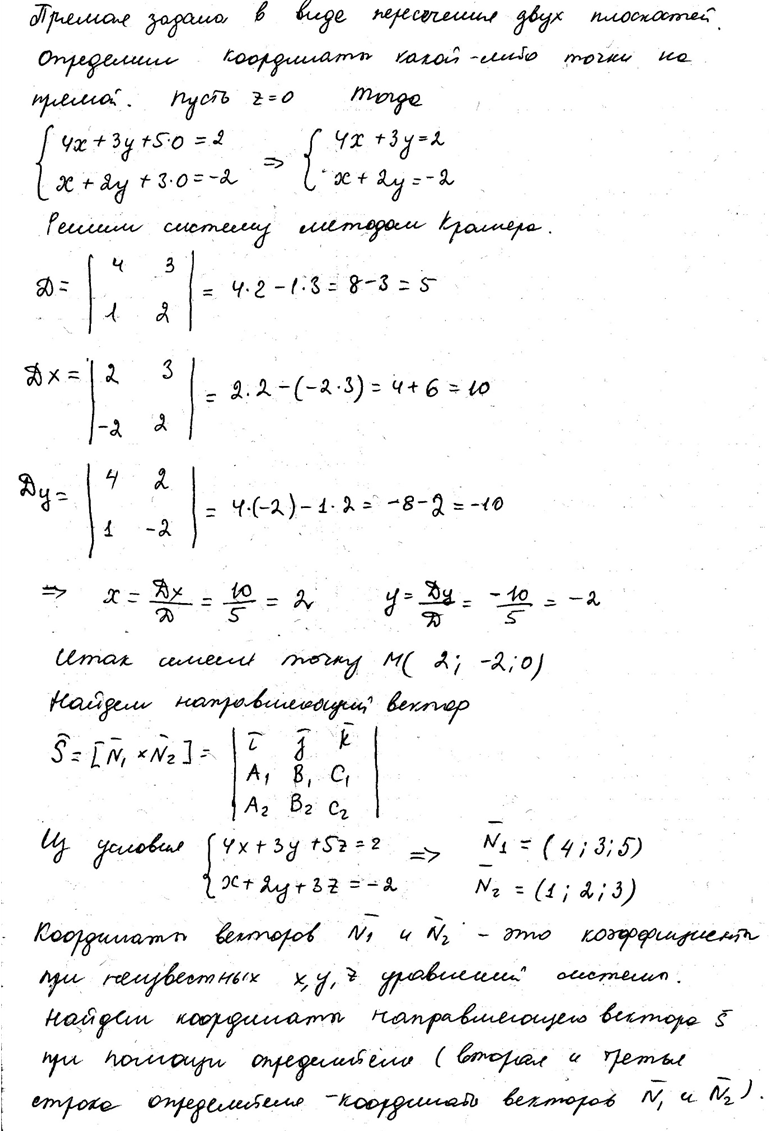 Прямая задана в виде пересечения двух плоскостей.
Определим координаты какой-либо точки на
прямой. Пусть z=0 Тогда
{ 4x+3y+5·0=2 ⇒ { 4x+3y=2
{ x+2y+3·0=-2 { x+2y=-2
Решим систему методом Крамера.
D = | 4 3 | = 4·2-1·3=8-3=5
| 1 2 |
Dx = | 2 3 | = 2·2-(-2·3)=4+6=10
| -2 2 |
Dy = | 4 2 | = 4·(-2)-1·2=-8-2=-10
| 1 -2 |
⇒ x = Dx/D = 10/5 = 2 y = Dy/D = -10/5 = -2
Итак имеем точку M( 2; -2; 0)
Найдем направляющий вектор
S̄ = [N̄₁ × N̄₂] = | ī j̄ k̄ |
| A₁ B₁ C₁ |
| A₂ B₂ C₂ |
Из условия { 4x+3y+5z=2 ⇒ N̄₁ = (4; 3; 5)
{ x+2y+3z=-2 N̄₂ = (1; 2; 3)
Координаты векторов N̄₁ и N̄₂ - это коэффициенты
при неизвестных x, y, z уравнений системы.
Найдем координаты направляющего вектора s̄
при помощи определителя (вторая и третья
строка определителя - координаты векторов N̄₁ и N̄₂).